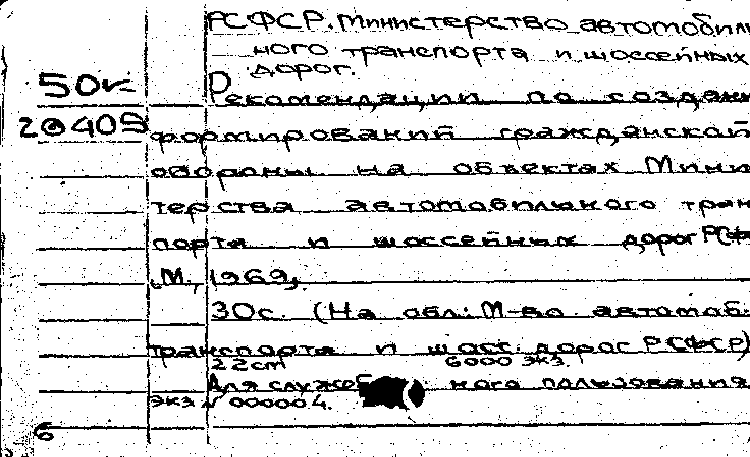 РСФСР. Министерство автомобиль
ного транспорта и шоссейных
дорог.
50к
Рекомендации по создани
20409
формирований гражданской
обороны на объектах Мини
терства автомобильного тран
порта и шоссейных дорог РСФ
М., 1969,
30с. (На обл.: М-во автомоб.
транспорта и шасс. дорог РСФСР)
22cm 6000 экз.
Для служеб ного пользования.
экз № 000004.
6